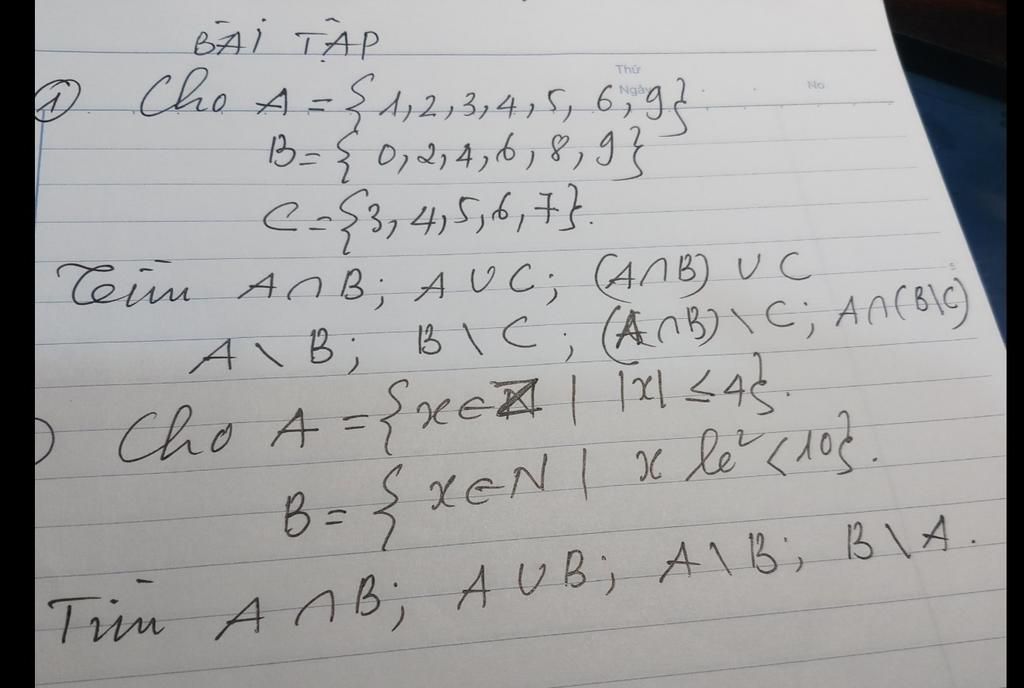 BÀI TẬP
Thứ
Ngày No
① Cho A = {1,2,3,4,5,6,9}
B = {0,2,4,6,8,9}
C = {3,4,5,6,7}.
Tìm A∩B; A∪C; (A∩B)∪C
A\B; B\C; (A∩B)\C; A∩(B\C)
) Cho A = {x∈ℤ | |x| ≤ 4}.
B = {x∈N | x lẻ < 10}.
Tìm A∩B; A∪B; A\B; B\A.